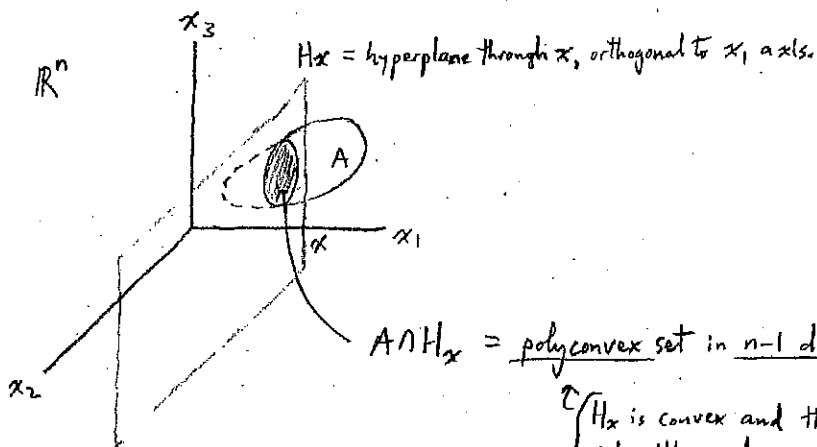 x₃
Hx = hyperplane through x, orthogonal to x₁ axis.
ℝⁿ
A
x
x₁
A∩Hₓ = polyconvex set in n-1 d
x₂
↑ Hₓ is convex and th